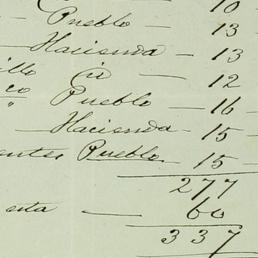 10
Pueblo - 13
- Hacienda - 13
illo Cio - 12
co Pueblo - 16
" Hacienda - 15
entes Pueblo - 15
277
esta — 60
337